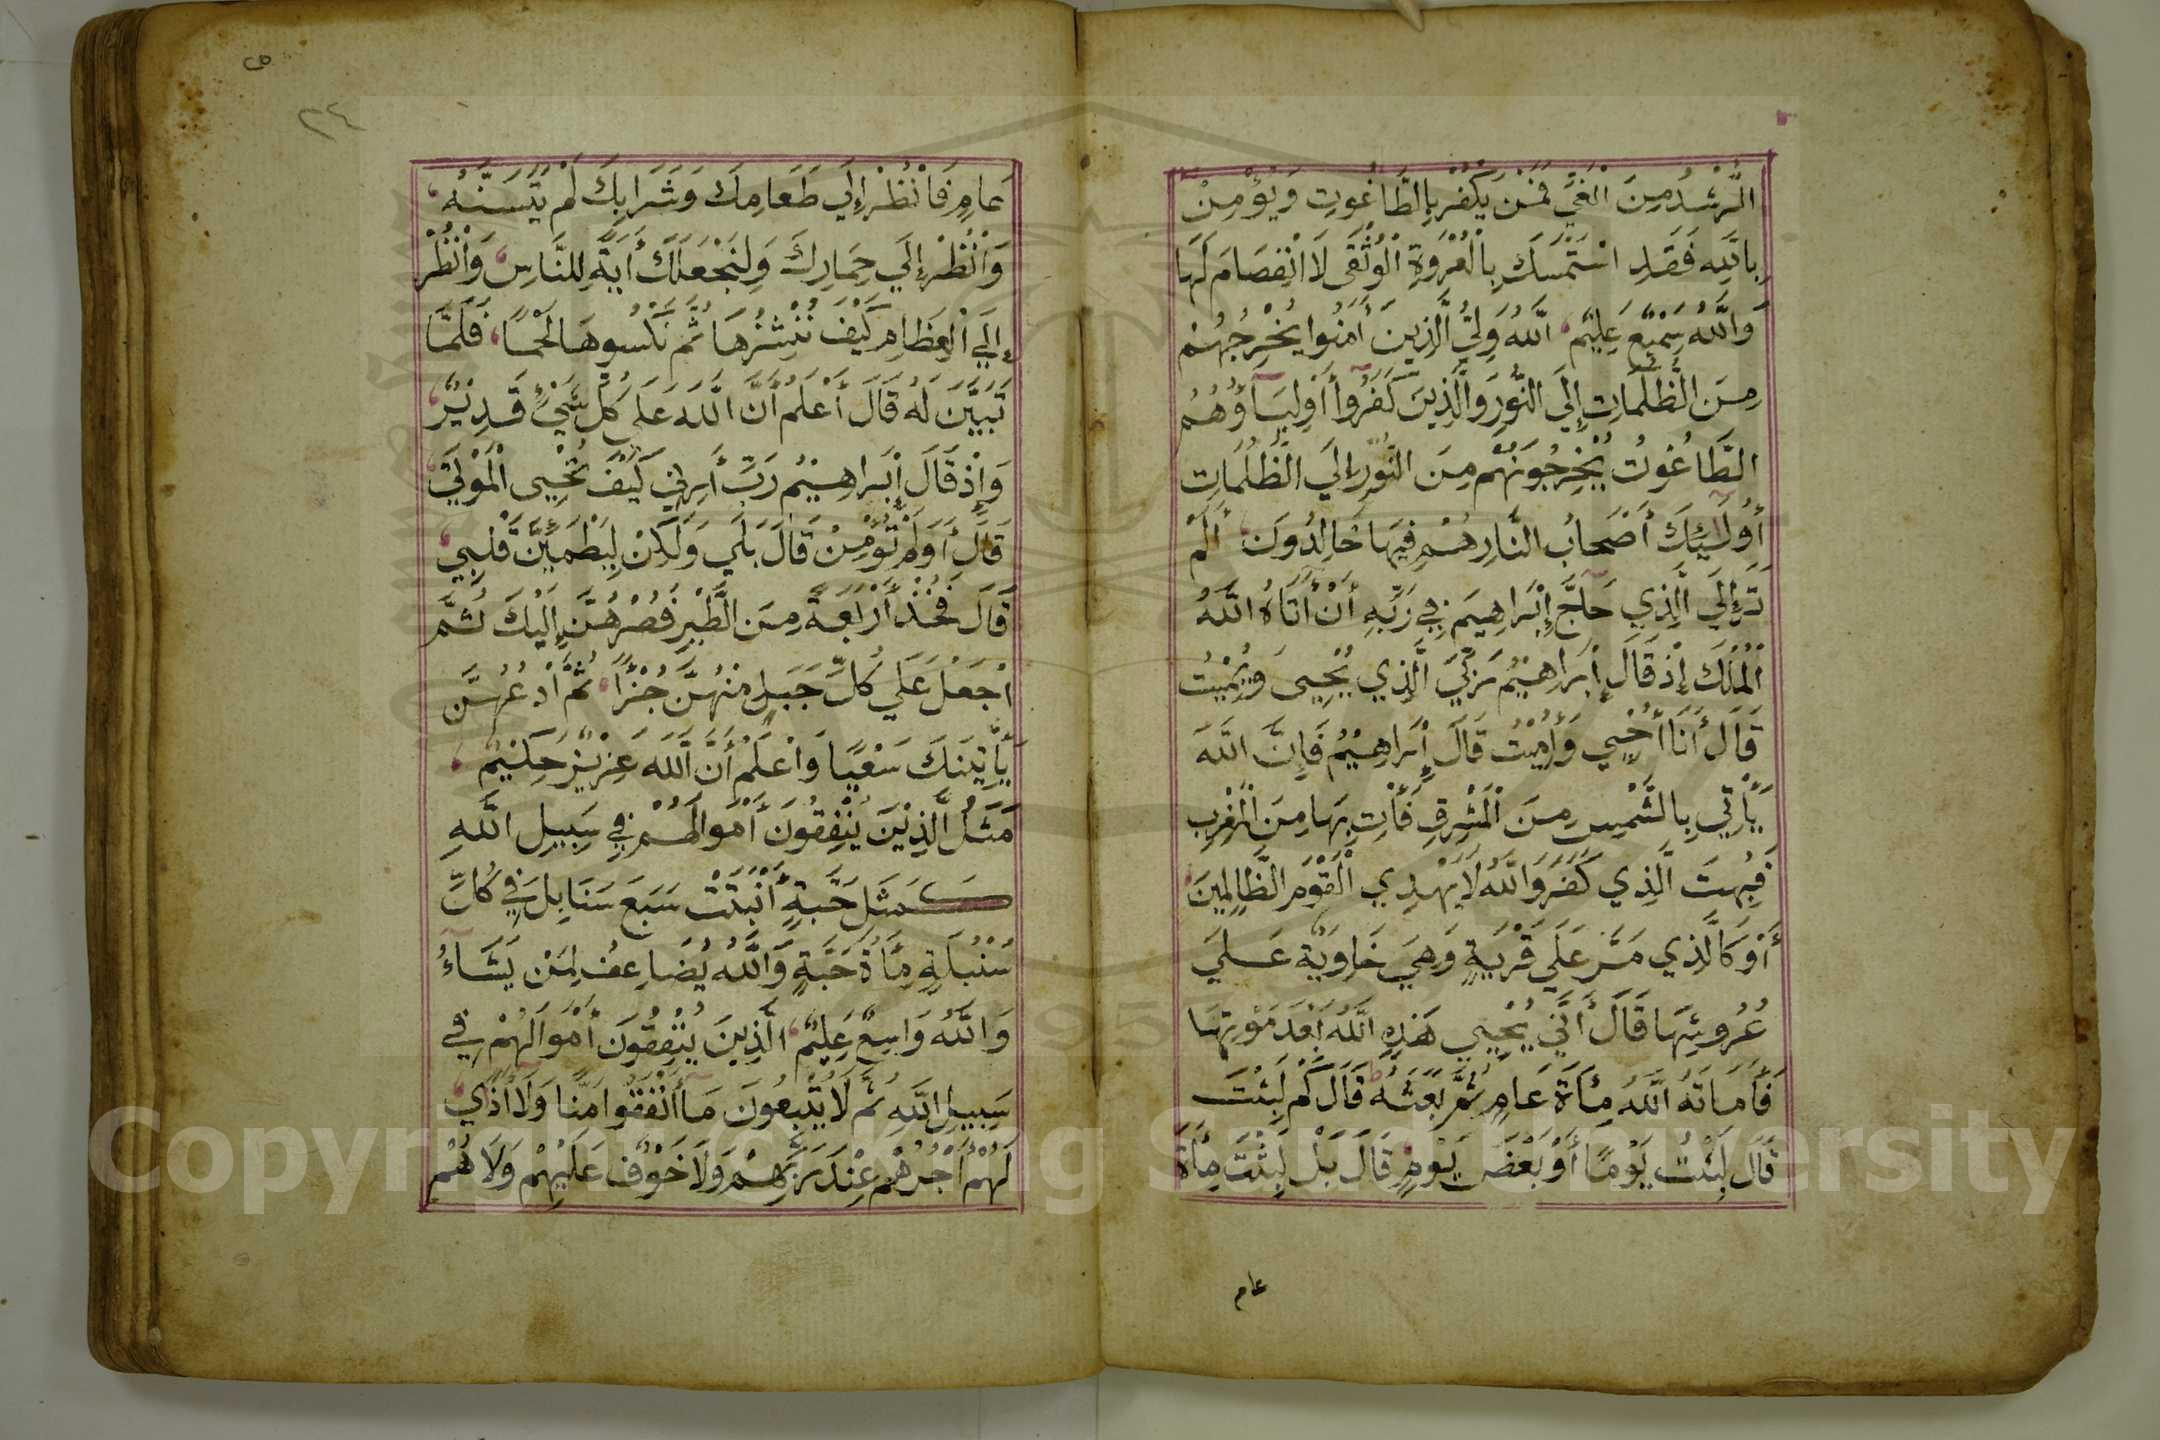 الرُّشْدُ مِنَ الْغَيِّ فَمَنْ يَكْفُرْ بِالطَّاغُوتِ وَيُؤْمِنْ
بِاللَّهِ فَقَدِ اسْتَمْسَكَ بِالْعُرْوَةِ الْوُثْقَى لَا انْفِصَامَ لَهَا
وَاللَّهُ سَمِيْعٌ عَلِيْمٌ اللَّهُ وَلِيُّ الَّذِينَ أَمَنُوا يُخْرِجُهُمْ
مِنَ الظُّلُمَاتِ إِلَي النُّورِ وَالَّذِينَ كَفَرُوا أَوْلِيَآؤُهُمُ
الطَّاغُوتُ يُخْرِجُونَهُمْ مِنَ النُّورِ إِلَي الظُّلُمَاتِ
أُولَـئِكَ أَصْحَابُ النَّارِ هُمْ فِيهَا خَالِدُونَ أَلَمْ
تَرَ إِلَي الَّذِي حَآجَّ إِبْرَاهِيمَ فِي رَبِّهِ أَنْ أَتَاهُ اللَّهُ
الْمُلْكَ إِذْ قَالَ إِبْرَاهِيْمُ رَبِّيَ الَّذِي يُحْيِى وَيُمِيْتُ
قَالَ أَنَا أُحْيِي وَأُمِيْتُ قَالَ إِبْرَاهِيْمُ فَإِنَّ اللَّهَ
يَأْتِي بِالشَّمْسِ مِنَ الْمَشْرِقِ فَأْتِ بِهَا مِنَ الْمَغْرِبِ
فَبُهِتَ الَّذِي كَفَرَ وَاللَّهُ لَا يَهْدِي الْقَوْمَ الظَّالِمِينَ
أَوْ كَالَّذِي مَرَّ عَلَي قَرْيَةٍ وَهِيَ خَاوِيَةٌ عَلَي
عُرُوشِهَا قَالَ أَنَّي يُحْيِي هَذِهِ اللَّهُ بَعْدَ مَوْتِهَا
فَأَمَاتَهُ اللَّهُ مِأَةَ عَامٍ ثُمَّ بَعَثَهُ قَالَ كَمْ لَبِثْتَ
قَالَ لَبِثْتُ يَوْمًا أَوْ بَعْضَ يَوْمٍ قَالَ بَلْ لَبِثْتَ مِأَةَ
عام
٢٤
عَامٍ فَانْظُرْ إِلَي طَعَامِكَ وَشَرَابِكَ لَمْ يَتَسَنَّهْ
وَانْظُرْ إِلَي حِمَارِكَ وَلِنَجْعَلَكَ أَيَةً لِلنَّاسِ وَانْظُرْ
إِلَي الْعِظَامِ كَيْفَ نُنْشِزُهَا ثُمَّ نَكْسُوهَا لَحْمًا فَلَمَّا
تَبَيَّنَ لَهُ قَالَ أَعْلَمُ أَنَّ اللَّهَ عَلَي كُلِّ شَيْءٍ قَدِيْرٌ
وَإِذْ قَالَ إِبْرَاهِيْمُ رَبِّ أَرِنِي كَيْفَ تُحْيِى الْمَوْتَي
قَالَ أَوَلَمْ تُؤْمِنْ قَالَ بَلَي وَلَكِنْ لِيَطْمَئِنَّ قَلْبِي
قَالَ فَخُذْ أَرْبَعَةً مِنَ الطَّيْرِ فَصُرْهُنَّ إِلَيْكَ ثُمَّ
اجْعَلْ عَلَي كُلِّ جَبَلٍ مِنْهُنَّ جُزْأً ثُمَّ ادْعُهُنَّ
يَأْتِيْنَكَ سَعْيًا وَاعْلَمْ أَنَّ اللَّهَ عَزِيْزٌ حَكِيْمٌ
مَثَلُ الَّذِيْنَ يُنْفِقُونَ أَمْوَالَهُمْ فِي سَبِيلِ اللَّهِ
كَمَثَلِ حَبَّةٍ أَنْبَتَتْ سَبَعَ سَنَابِلَ فِي كُلِّ
سُنْبُلَةٍ مِأَةُ حَبَّةٍ وَاللَّهُ يُضَاعِفُ لِمَنْ يَشَآءُ
وَاللَّهُ وَاسِعٌ عَلِيْمٌ الَّذِينَ يُنْفِقُونَ أَمْوَالَهُمْ فِي
سَبِيلِ اللَّهِ ثُمَّ لَا يُتْبِعُونَ مَآ أَنْفَقُوا مَنًّا وَلَا أَذًي
لَهُمْ أَجْرُهُمْ عِنْدَ رَبِّهِمْ وَلَا خَوْفٌ عَلَيْهِمْ وَلَا هُمْ
Copyright © King Saud University